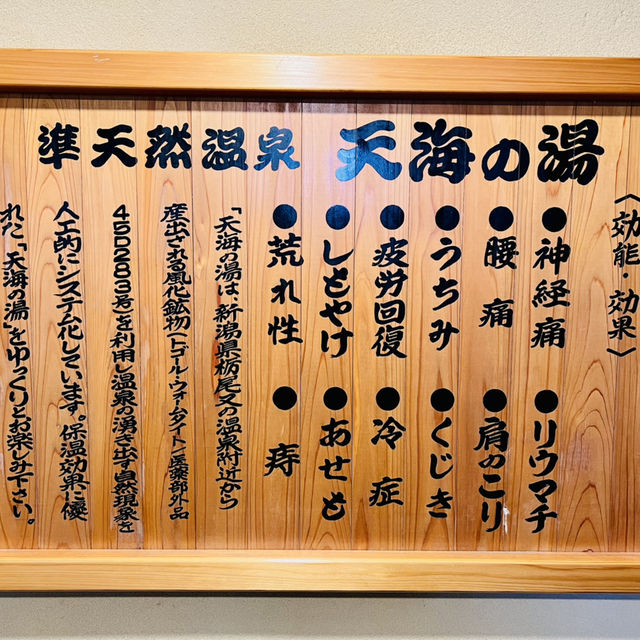 準天然温泉 天海の湯
〈効能・効果〉
●神経痛 ●リウマチ
●腰痛 ●肩のこり
●うちみ ●くじき
●疲労回復 ●冷症
●しもやけ ●あせも
●荒れ性 ●痔
「天海の湯は、新潟県栃尾又の温泉付近から
産出される風化鉱物(トゴール・ウォームタイト/医薬部外品
45D283号)を利用し温泉の湧き出す自然現象を
人工的にシステム化しています。保温効果に優
れた「天海の湯」をゆっくりとお楽しみ下さい。